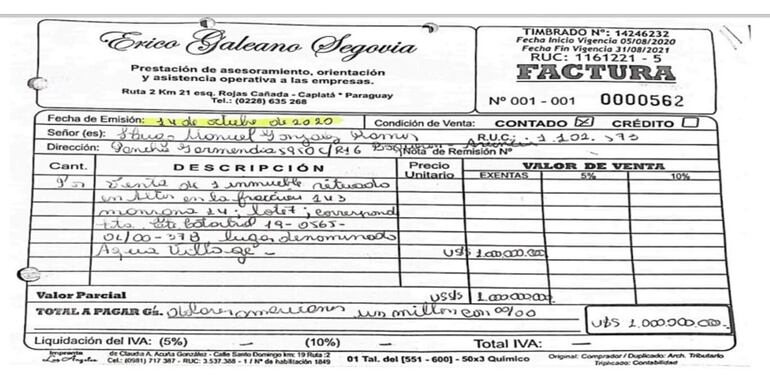 Erico Galeano Segovia
Prestación de asesoramiento, orientación
y asistencia operativa a las empresas.
Ruta 2 Km 21 esq. Rojas Cañada - Capiatá * Paraguay
Tel.: (0228) 635 268
TIMBRADO N°: 14246232
Fecha Inicio Vigencia 05/08/2020
Fecha Fin Vigencia 31/08/2021
RUC: 1161221 - 5
FACTURA
N° 001 - 001 0000562
Fecha de Emisión: 14 de octubre de 2020 Condición de Venta: CONTADO X CRÉDITO
Señor (es): Manuel Ramos R.U.C.: 1.102.573
Dirección: Pancha Garmendia c/ R16 Nota de Remisión N°
Cant. DESCRIPCIÓN Precio Unitario VALOR DE VENTA
EXENTAS 5% 10%
Por Venta de 1 inmueble situado
en Altos en la fracción 143
manzana 24; lote 7; correspond
Cta. Cte Catastral 19-0565-
02/00-378 lugar denominado
Aqua Village - US$ 1.000.000.00
Valor Parcial US$ 1.000.000.00.
TOTAL A PAGAR G. dólares americanos un millón con 00/00 U$S 1.000.000.00.-
Liquidación del IVA: (5%) (10%) Total IVA:
Imprenta Los Angeles de Claudia A. Acuña González - Calle Santo Domingo km: 19 Ruta :2
Cel.: (0981) 717 387 - RUC: 3.537.388 - 1 / N° de habilitación 1849
01 Tal. del [551 - 600] - 50x3 Químico
Original: Comprador / Duplicado: Arch. Tributario
Triplicado: Contabilidad